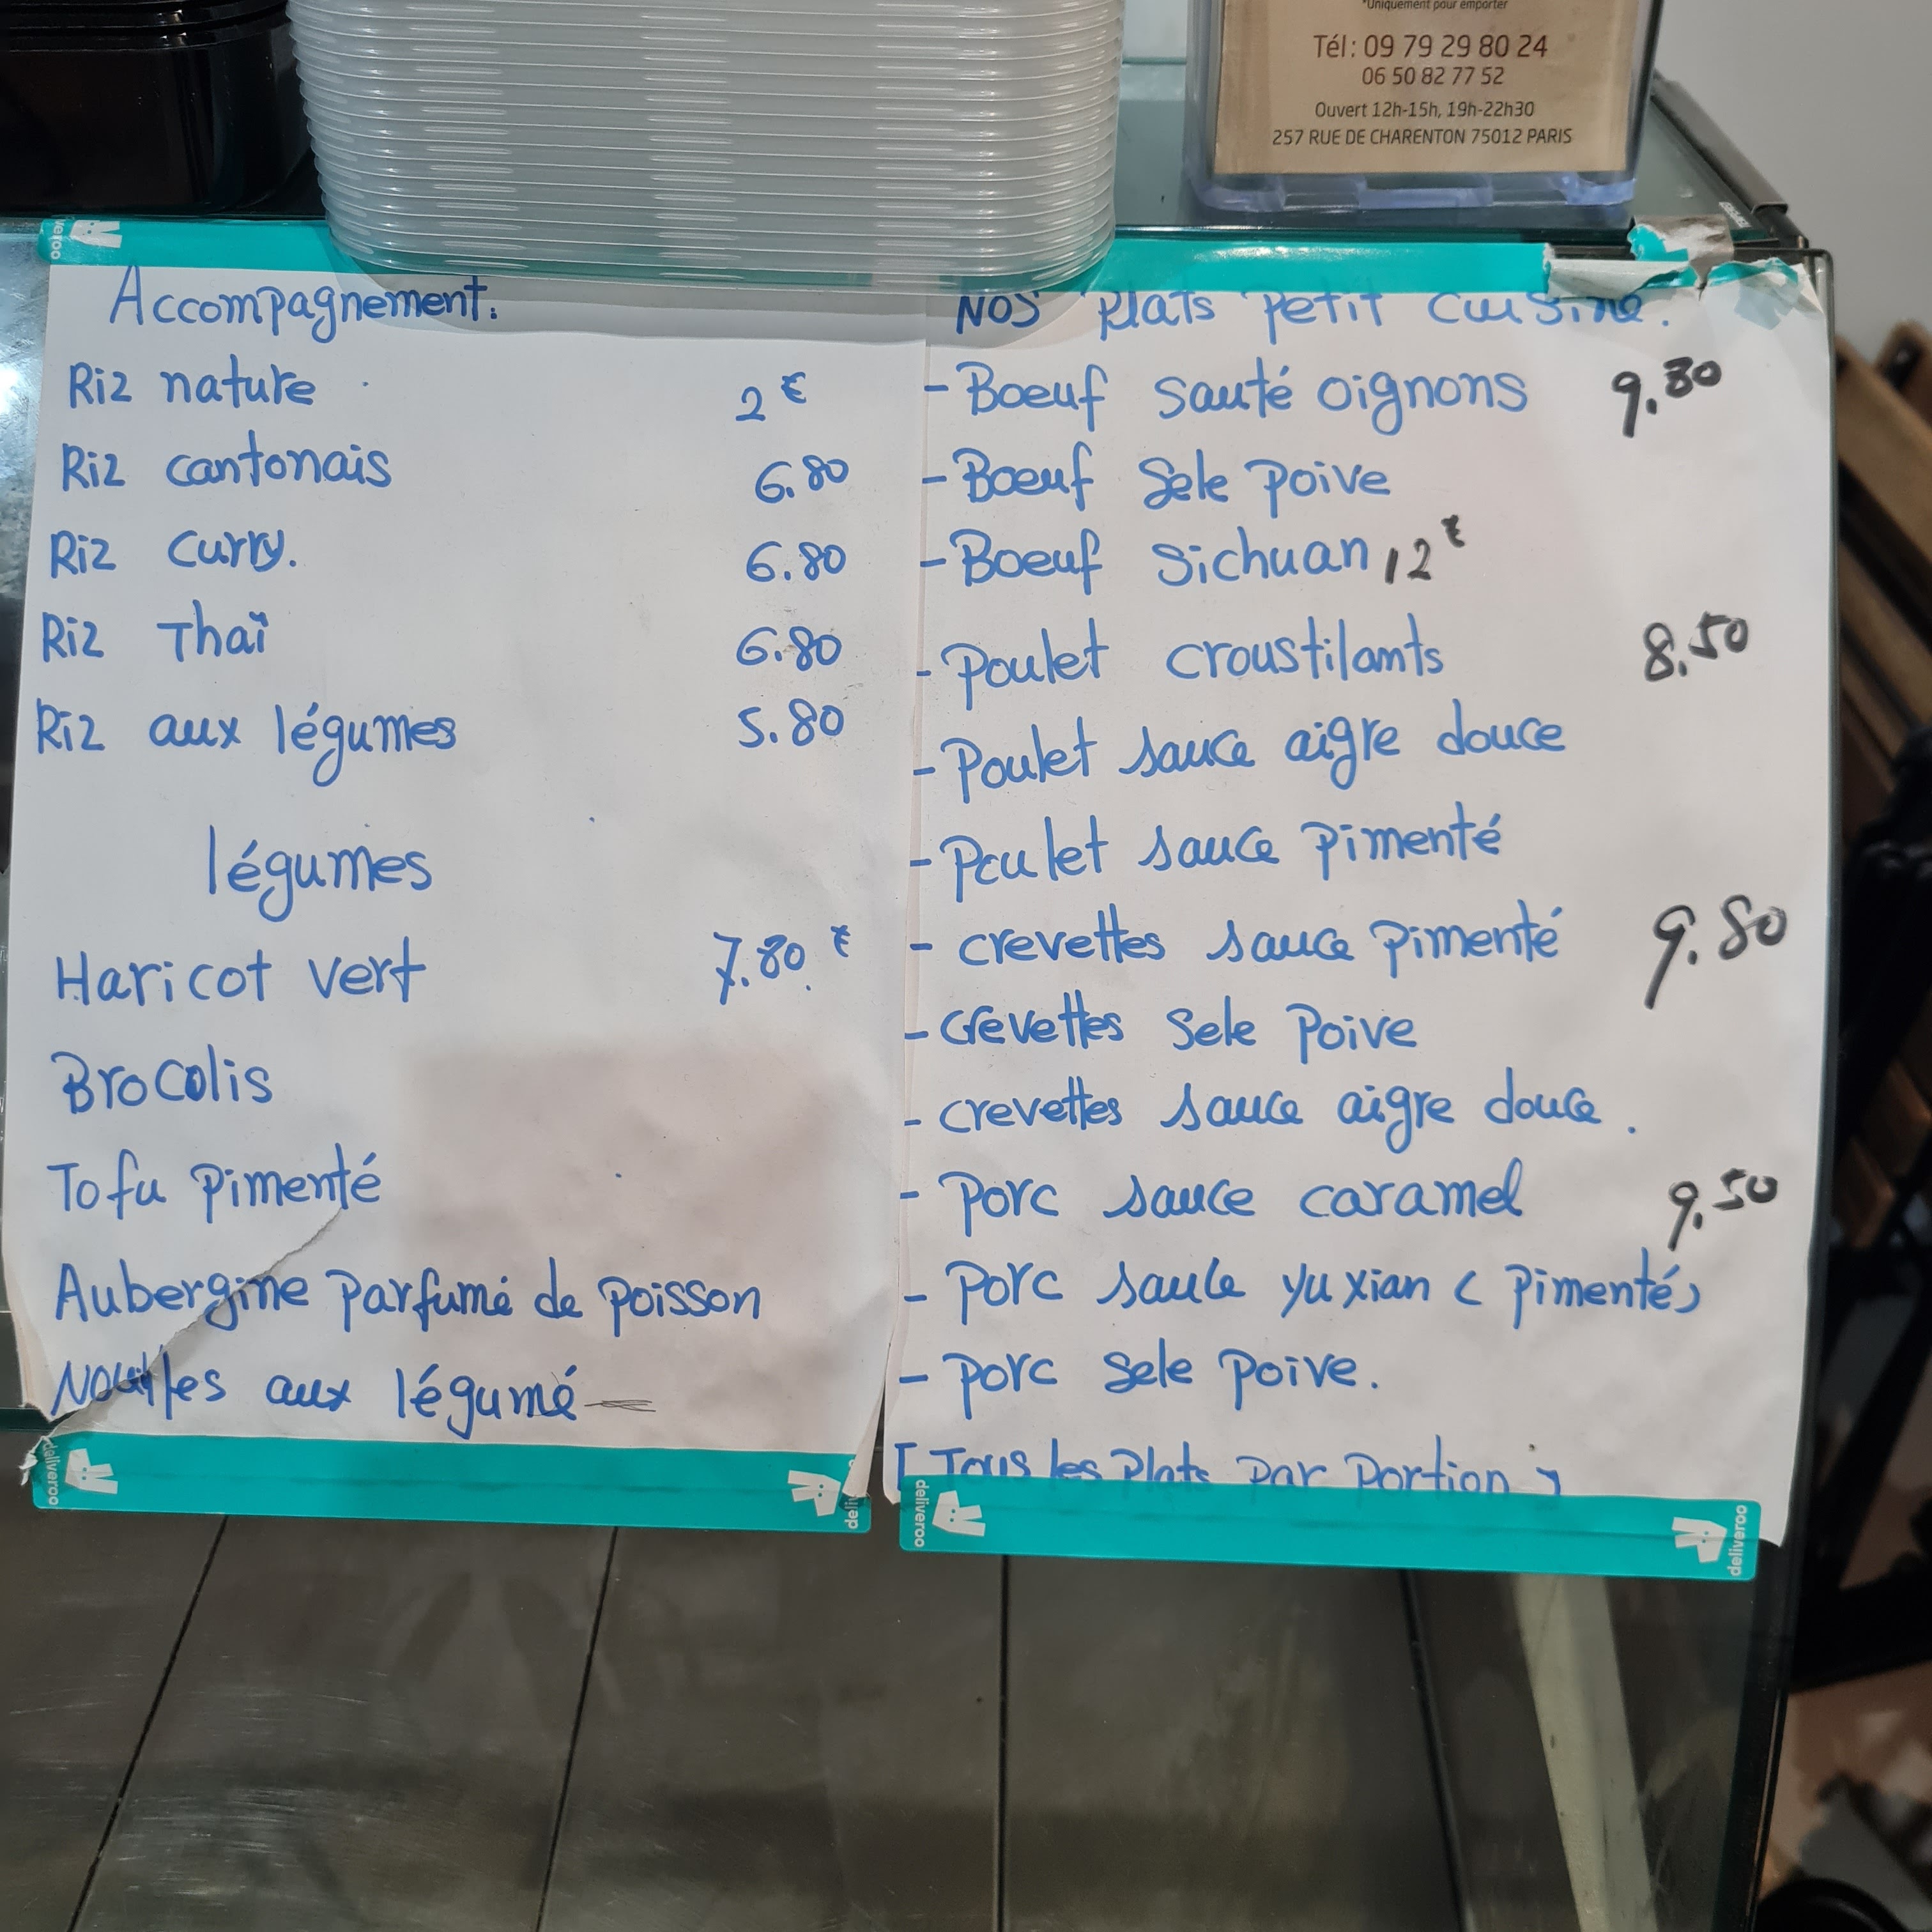 *Uniquement pour emporter
Tél: 09 79 29 80 24
06 50 82 77 52
Ouvert 12h-15h, 19h-22h30
257 RUE DE CHARENTON 75012 PARIS
Accompagnement:
Riz nature 2€
Riz cantonais 6.80
Riz curry. 6.80
Riz Thaï 6.80
Riz aux légumes 5.80
légumes
Haricot vert 7.80€
Brocolis
Tofu pimenté
Aubergine parfumé de poisson
Nouilles aux légumé
NOS plats petit cuisine.
- Boeuf sauté oignons 9.80
- Boeuf sele poive
- Boeuf sichuan 12€
- Poulet croustilants 8.50
- Poulet sauce aigre douce
- Poulet sauce pimenté
- crevettes sauce pimenté 9.80
- crevettes sele poive
- crevettes sauce aigre douce.
- porc sauce caramel 9.50
- porc saule yuxian (pimenté)
- porc sele poive.
[Tous les plats par portion]
deliveroo
deliveroo
deliveroo